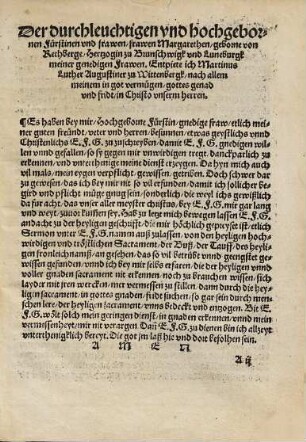 Der durchleuchtigen vnd hochgebor-
nen Fürstinen vnd frawen, frawen Margarethen, geborne von
Rethberge, Hertzogin zu Brunschwigk vnd Luneburgk
meiner genedigen Frawen, Entpiete ich Martinus
Luther Augustiner zu Wittenbergk, nach allem
meinem in got vermügen, gottes genad
vnd fridt, in Christo vnserm herren.
¶Es haben bey mir, Hochgeborne Fürstin, gnedige fraw, etlich mei-
ner guten freundt, veter vnd herren, besunnen, etwas geystlichs vnnd
Christenlichs E.F.G. zu zuschreyben, damit E.F.G. gnedigen wil-
len vnnd gefallen, so sy gegen mir vnwirdigen tregt, danckparlich zu
erkennen, vnd mein vnterthenige dienst ertzeygen, Da hyn mich auch
vil mals, mein eygen verpflicht, gewissen, getriben. Doch schwer dar
zu gewesen, das ich bey mir nit so vil erfunden, damit ich solicher be-
gird vnd pflicht genüg möcht sein, sonderlich, die weyl ich gewißlich
da fur acht, das vnser aller meyster christus, bey E.F.G. mir gar lang
vnd weyt, zuuor kumen sey. Hab zu letzt mich bewegen lassen E.F.G.
andacht zu der heyligen geschrifft, die mir höchlich gepreyset ist, etlich
Sermon vnter E.F.G. namen auß zulassen, von den heyligen hoch-
wirdigen vnd tröstlichen Sacrament, der Buß, der Tauff, des hey-
ligen fronleichnams, an gesehen, das so vil betrübt vnnd geengstet ge-
wissen gefunden, vnnd ich bey mir selbs erfaren, die der heyligen vnnd
voller gnaden sacrament nit erkennen, noch zu brauchen wissen, sich
layder mit yren wercken, mer vermessen zu stillen, dann durch die hey-
ligen sacrament, in gottes gnaden, fridt suchen, so gar sein durch men-
schen lere, der heyligen sacrament, vnns bedeckt vnd entzogen. Bit E.
F.G. wölt solch mein geringen dienst, in gnaden erkennen, vnnd mein
vermessenheyt, mir nit verargen. Dañ E.F.G. zu dienen bin ich allzeyt
vntertheniglich bereyt. Die got jm laß hie vnd dort befolhen sein.
A M E N
A ij